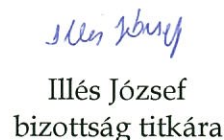 Illés József
Illés József
bizottság titkára